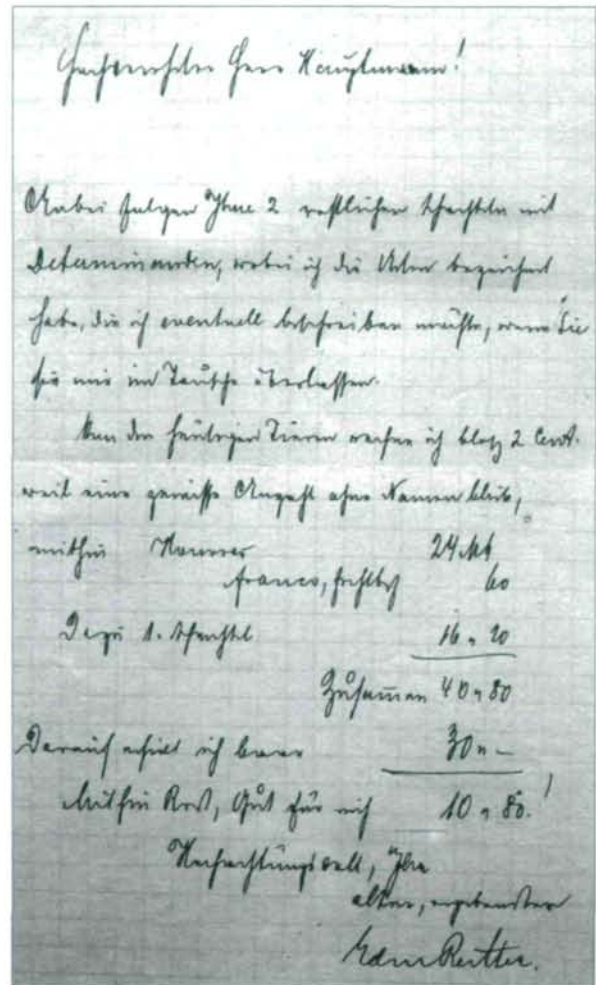 Hochverehrter Herr Hauptmann!
Anbei folgen Ihre 2 restlichen Schachteln mit
Determinanden, wobei ich die Arten bezeichnet
habe, die ich eventuell beschreiben möchte, wenn Sie
sie mir im Tausche überlassen.
Von den heutigen Tieren rechne ich bloß 2 Cent.
weil eine gewisse Anzahl ohne Namen blieb,
mithin 24 M
franco, 60
Dazu 1. Schachtel 16 " 20
Zusammen 40 " 80
Darauf erhielt ich baar 30 " –
Mithin Rest, Gut für mich 10 " 80.!
Hochachtungsvoll, Ihr
alter, ergebenster
Edm Reitter.